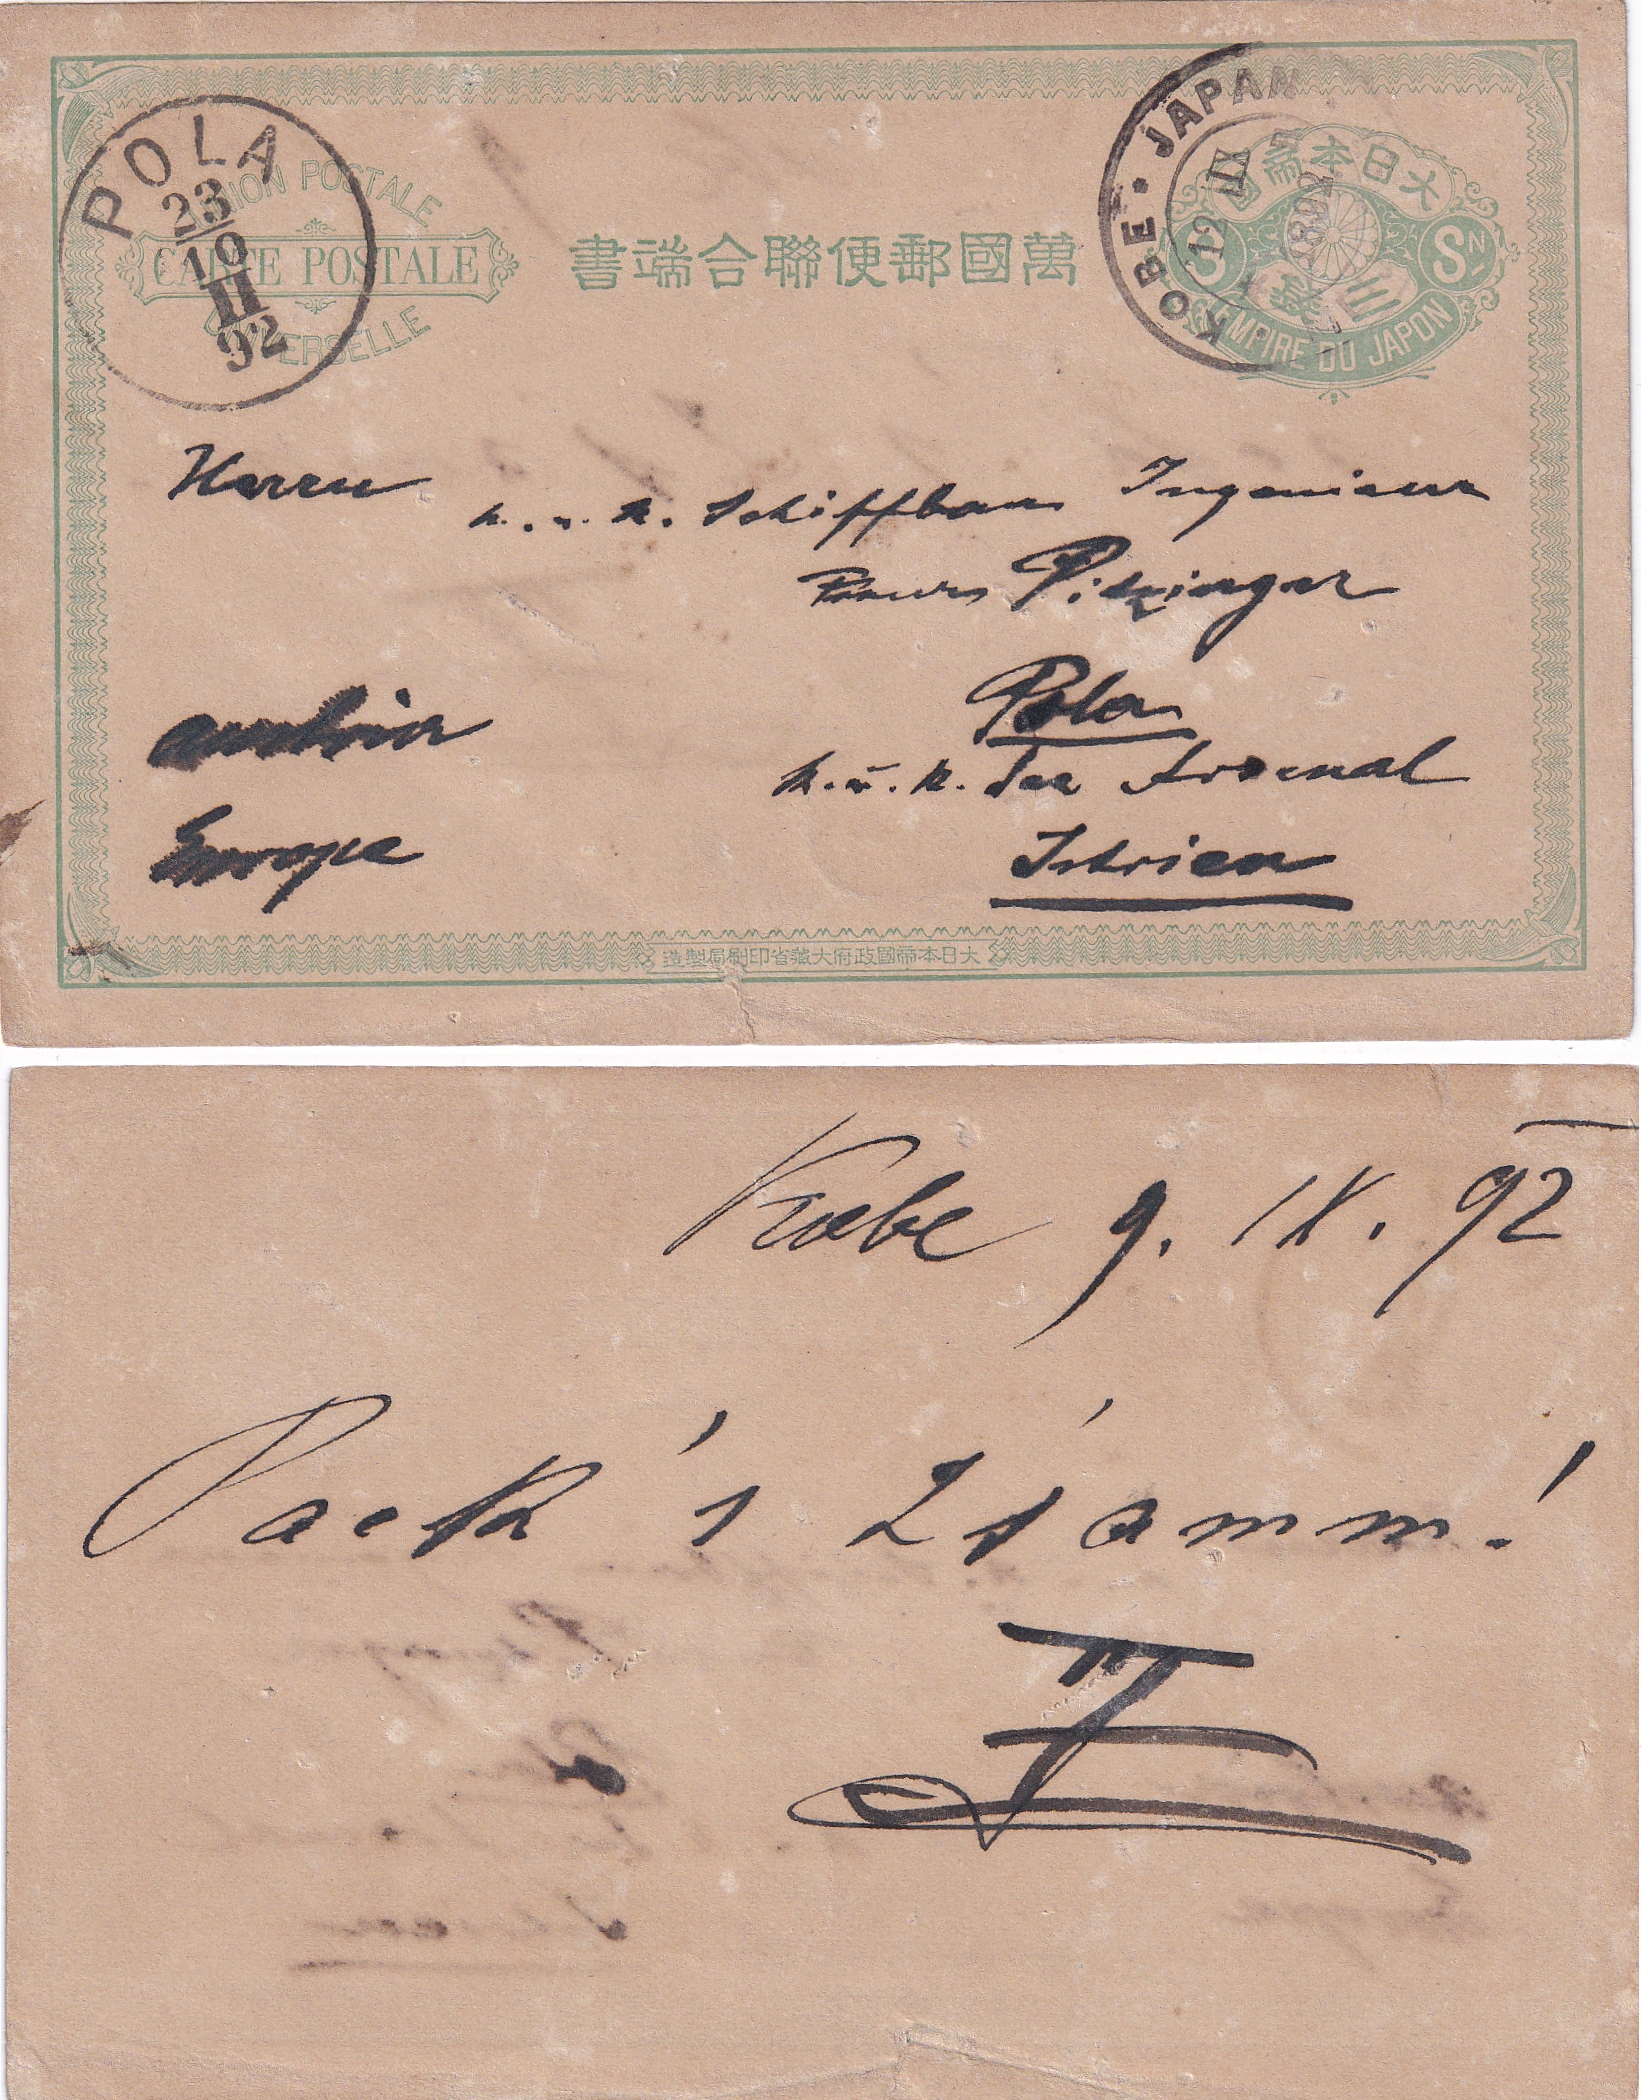 POLA
23
10
II
92
UNION POSTALE
CARTE POSTALE
UNIVERSELLE
萬國郵便聯合端書
KOBE • JAPAN
12
1892
大日本帝國
三錢
3 SN
EMPIRE DU JAPON
Herrn
k. u. k. Schiffbau Ingenieur
Franz Pitzinger
Pola
k. u. k. See Arsenal
Istrien
Austria
Europe
大日本帝國政府大藏省印刷局製造
Kobe 9. IX. 92
Pack's z'samm!